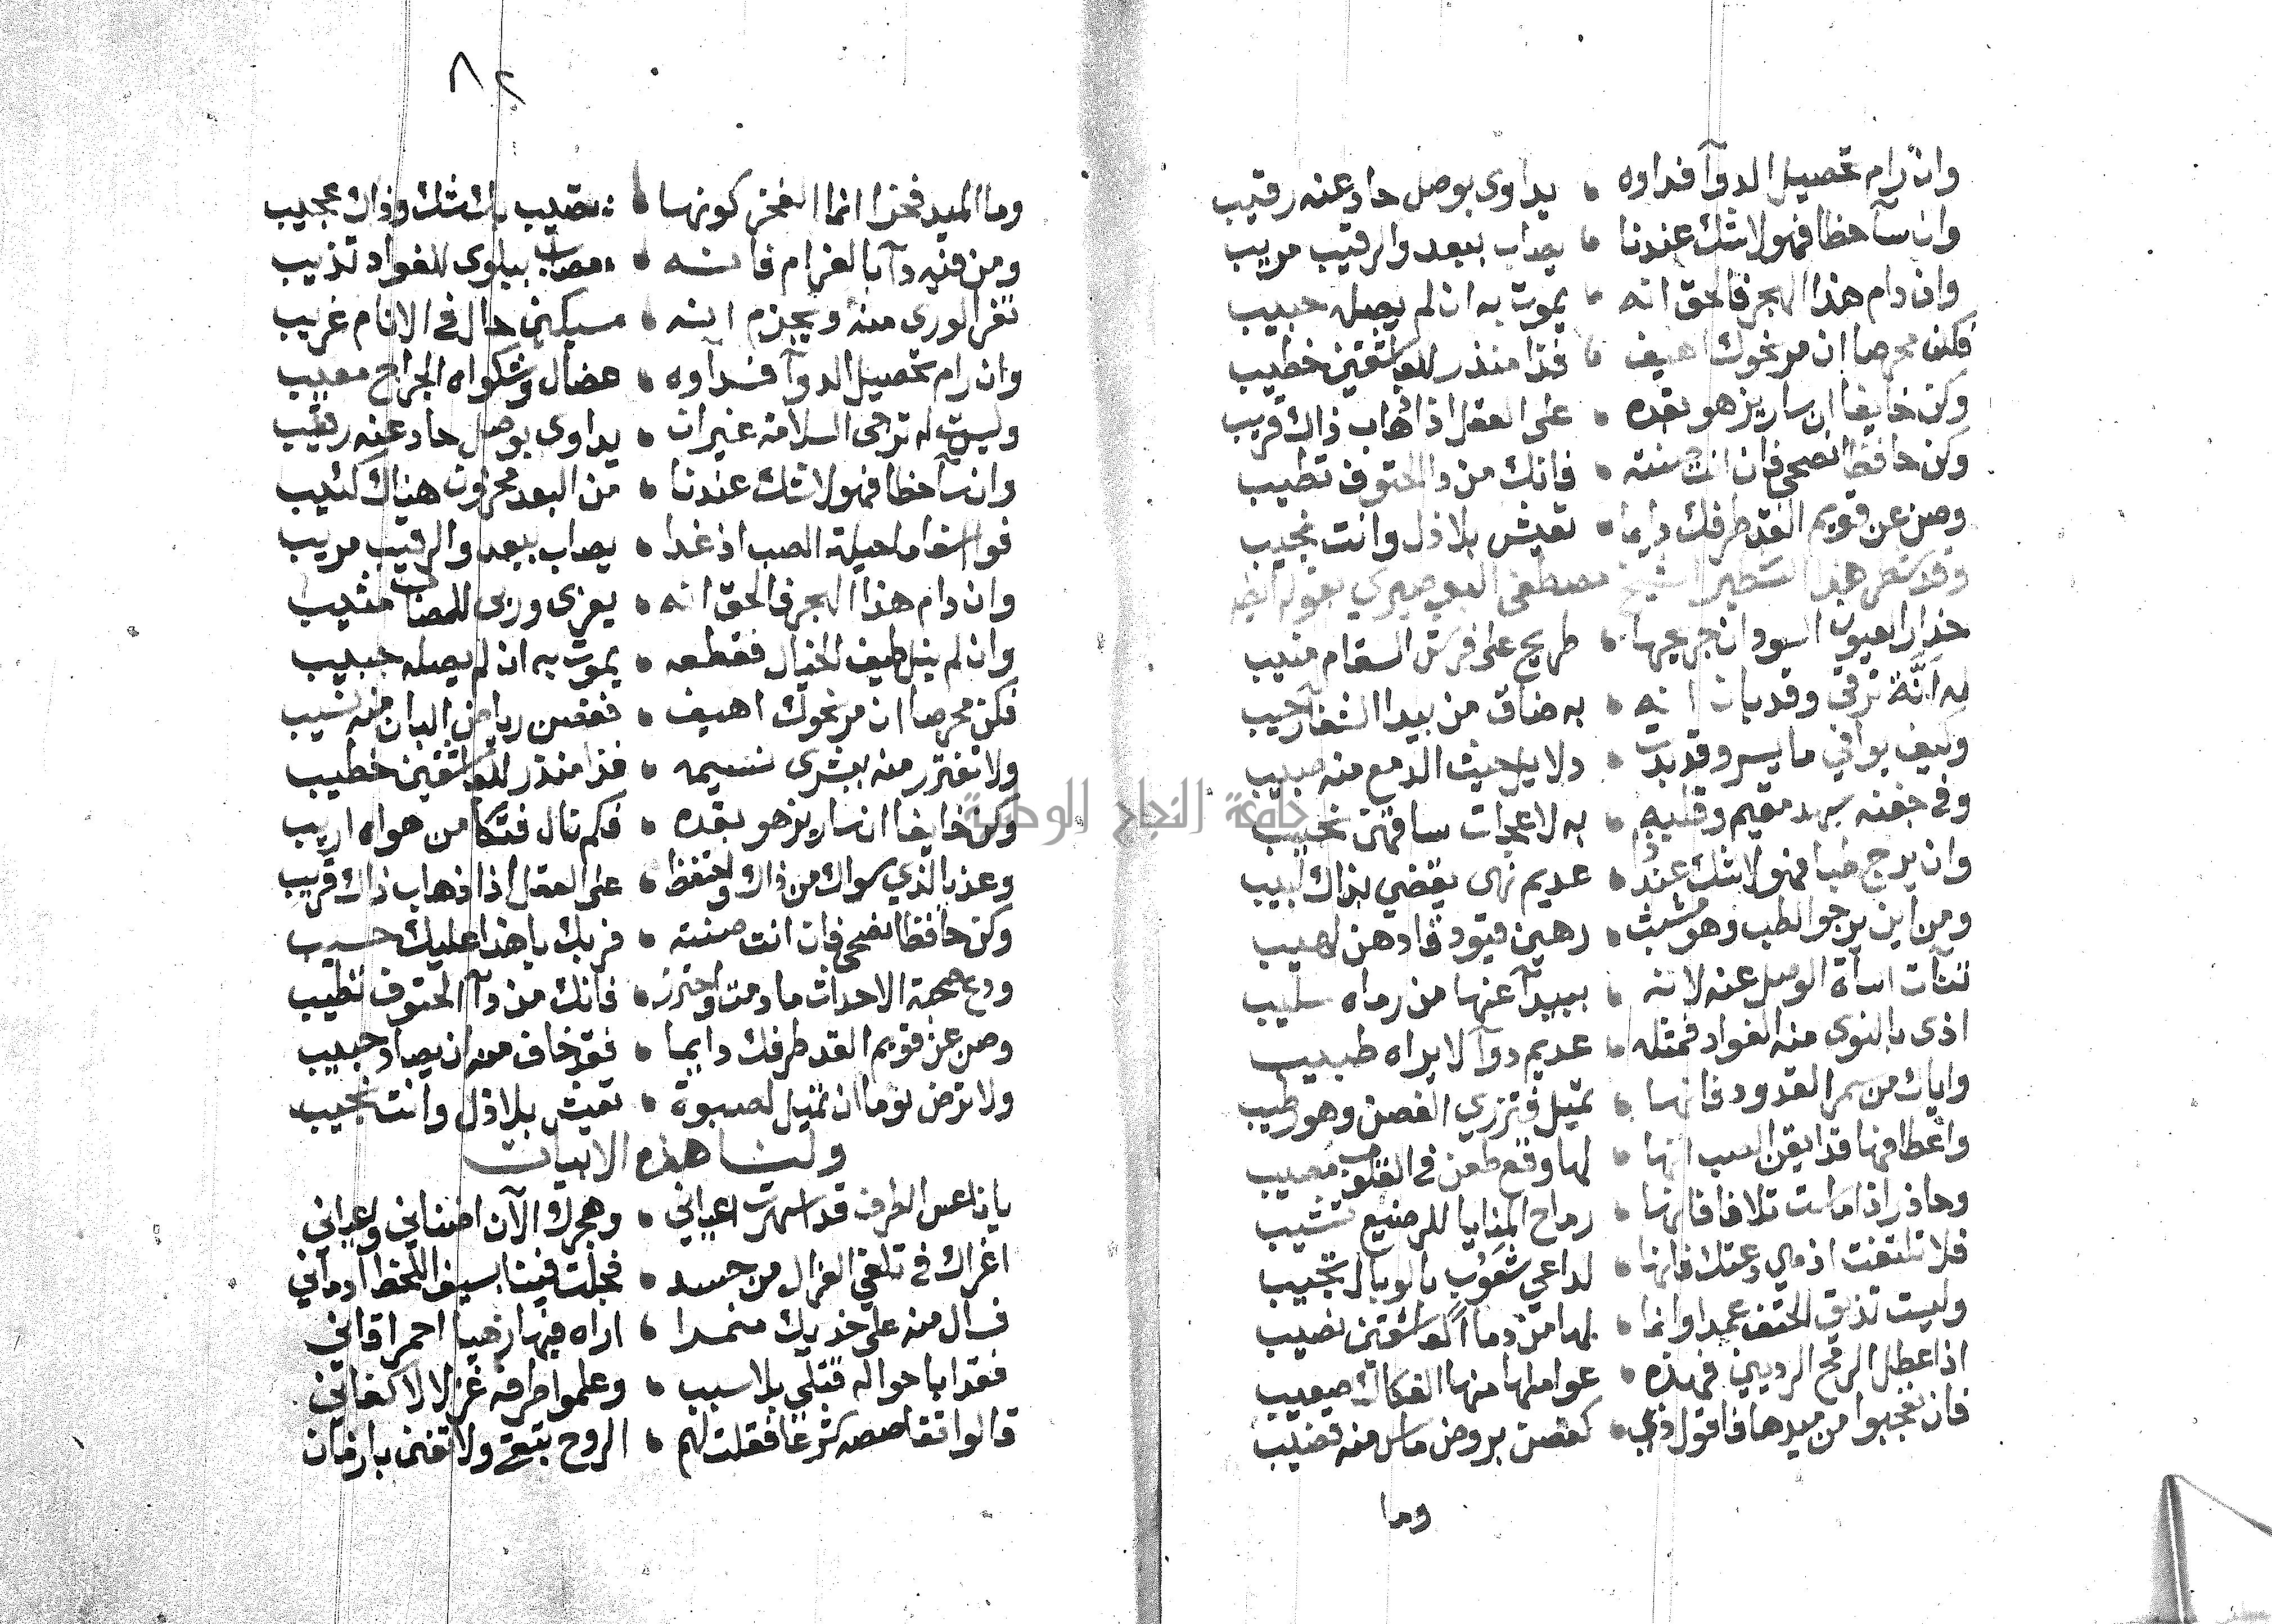 وان رام تحصيل الدوآ فداوه • يداوى بوصل حاد عنه رقيب
وان سآ حظا فهو لا شك عندنا • يصاب ببعد والرقيب مريب
وان دام هذا الهجر فالحق انه • يموت به ان لم يصله حبيب
فكن محرصا ان مر نحوك اهيف • فذا منذر للعاشقين خطيب
وكن خايفا ان سار يزهو بقده • على العقل اذ اذهاب ذاك قريب
وكن حافظا نصحى فان انت صنته • فانك من دا الحتوف تطيب
وصن عن قويم القد طرفك دايما • تعيش بلا ذل وانت نجيب
وقد شطر هذا التشطير الشيخ مصطفى البوصيري بقوله
حذار العيون السود ان جريحها • طريح على فرش السقام منيب
له انة ترقى وقد بان انه • به ضاق من بيدا الشفا رحيب
وكيف يوافي ما يسر وقد بدت • دلايل حيث الدمع منه صبيب
وفي جفنه سهد مقيم وقلبه • به لاعجات ساقهن نحيب
وان يرج طبا فهو لا شك عنده • عديم نهى يقضي بذاك لبيب
ومن اين يرجو الطب وهو مشبث • رهين قيود قادهن لهيب
تنآت اسآة الوصل عنه لانه • ببيدآ عنها من رماه سليب
اذى بالنوى منه الفواد فمثله • عديم دوآ لا يراه طبيب
واياك من سمر القدود فانها • تميل فتزري الغصن وهو رطيب
واعطافها قد ايقن الصب انها • لها وقع طعن في القلوب مصيب
وحاذر اذا ماست تلافا فانها • رماح المنايا للرضيع تشيب
فلا تلتفت اذ هي دعتك فانها • لداعي شعوب بالوبال تجيب
وليست تذيق الحتف عمدا وانما • لها من دما العاشقين نصيب
اذا عطل الرمح الرديني فهذه • عواملها منها الفكاك صعيب
فان تعجبوا من ميدها فاقول ذي • كغصن بروض ماس منه قضيب
وما
٨٢
وما الميد فخرا انما الفخر كونها • تصيب بلا شك وذاك عجيب
ومن فيه دآ بالغرام فانه • مصاب ببلوى للفواد تذيب
تفر الورى منه ويجزم انه • مسيكين حال في الانام غريب
وان رام تحصيل الدوآ فدآوه • عضال وشكواه الجراح معيب
وليست له ترجى السلامة غير ان • يداوى بوصل حاد عنه رقيب
وان سآ حظا فهو لا شك عندنا • من البعد محزون هناك كئيب
فوا اسفا ما حيلة الصب اذ غدا • يصاب ببعد والرقيب مريب
وان دام هذا الهجر فالحق انه • يعزى وربى للمصاب مثيب
وان لم ينل طيف الخيال فقطعه • يموت به ان لم يصله حبيب
فكن محرصا ان مر نحوك اهيف • فغصن رياض البان منه نسيب
ولا تغترر منه ببشرى نسيمه • فذا منذر للعاشقين خطيب
وكن خايفا ان سار يزهو بقده • فكم نال فتكا من هواه اريب
وعذ بالذي سواك من ذاك واحتفظ • على العقل اذ اذهاب ذاك قريب
وكن حافظا نصحى فان انت صنته • فربك يا هذا عليك حسيب
ودع صحبة الاحداث ما دمت واحترز • فانك من دآ الحتوف تطيب
وصن عن قويم القد طرفك دايما • فقد خاف منه ان يصاد حبيب
ولا ترض يوما ان تميل لصبوة • تعيش بلا ذل وانت نجيب
ولنا هذه الابيات
يا ناعس الطرف قد اسهرت اعياني • وهجرك الآن اضناني واعياني
اغراك في تلفي الغزال من حسد • فجلت فينا بسيف اللحظ ادماني
فسال منه على خديك منه دما • اراه فيها زهيا احمرا قاني
فقد اباحوا له قتلي بلا سبب • وعلموا طرفه غزلا لاكفاني
قالوا تقاصصه شرعا فقلت لهم • الروح تبقى ولا تفنى بازمان